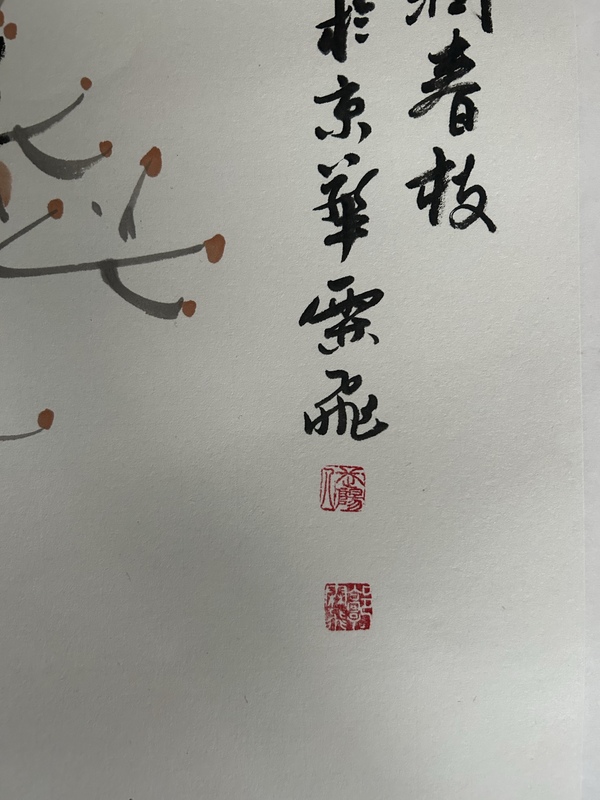 春枝
於京華雲飛